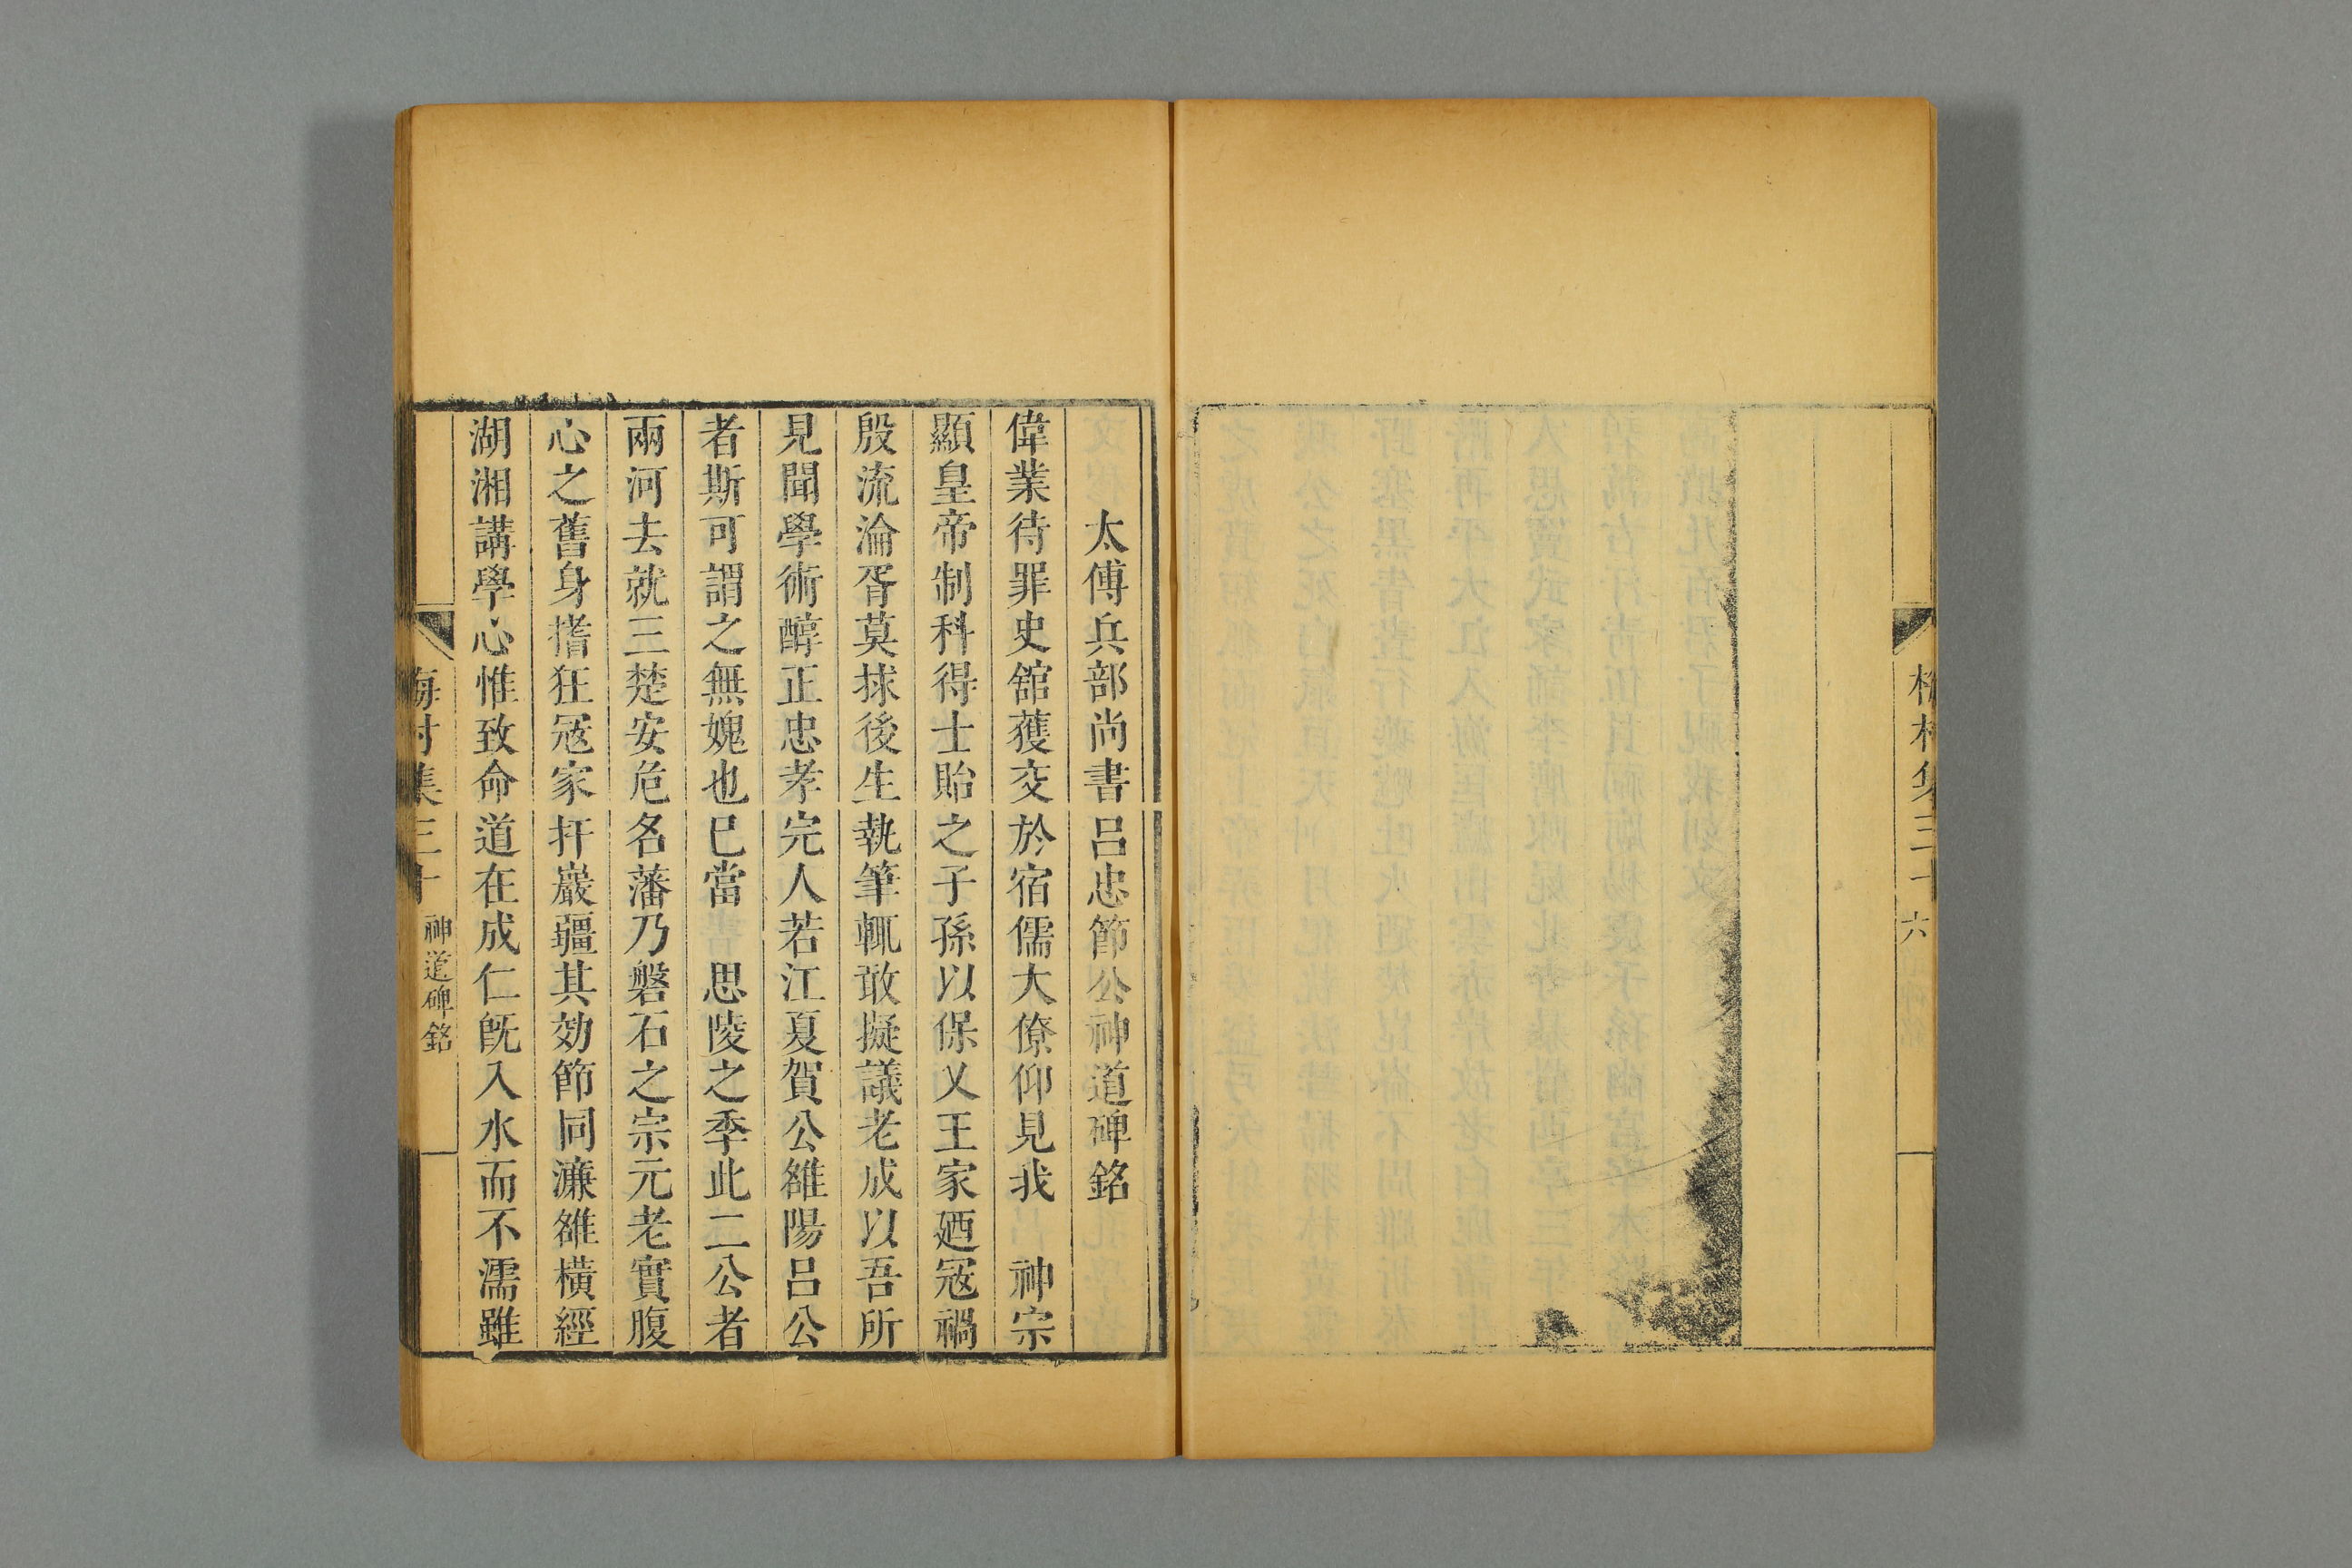 梅村集三十六
太傅兵部尚書呂忠節公神道碑銘
偉業待罪史舘獲交於宿儒大僚仰見我　神宗
顯皇帝制科得士貽之子孫以保乂王家廼冦禍
殷流淪胥莫捄後生執筆輒敢擬議老成以吾所
見聞學術醇正忠孝完人若江夏賀公雒陽呂公
者斯可謂之無媿也巳當　思陵之季此二公者
兩河去就三楚安危名藩乃磐石之宗元老實腹
心之舊身搘狂冦家扞巖疆其効節同濂雒橫經
湖湘講學心惟致命道在成仁旣入水而不濡雖
梅村集三十　神道碑銘